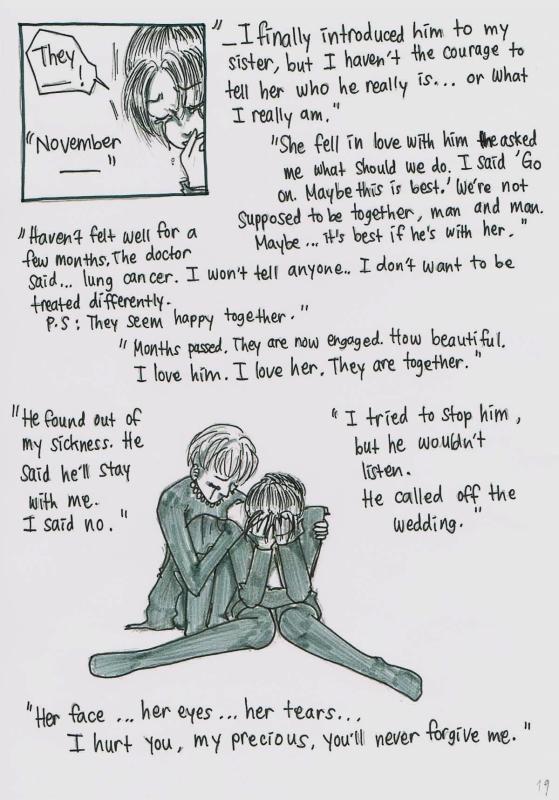 They
__!
"November
__"
"_I finally introduced him to my
sister, but I haven't the courage to
tell her who he really is... or what
I really am."
"She fell in love with him he asked
me what should we do. I said 'Go
on. Maybe this is best.' We're not
supposed to be together, man and man.
Maybe... it's best if he's with her."
"Haven't felt well for a
few months. The doctor
said... lung cancer. I won't tell anyone.. I don't want to be
treated differently.
P.S: They seem happy together."
"Months passed. They are now engaged. How beautiful.
I love him. I love her. They are together."
"He found out of
my sickness. He
said he'll stay
with me.
I said no."
"I tried to stop him,
but he wouldn't
listen.
He called off the
wedding."
"Her face... her eyes... her tears...
I hurt you, my precious, you'll never forgive me."
19